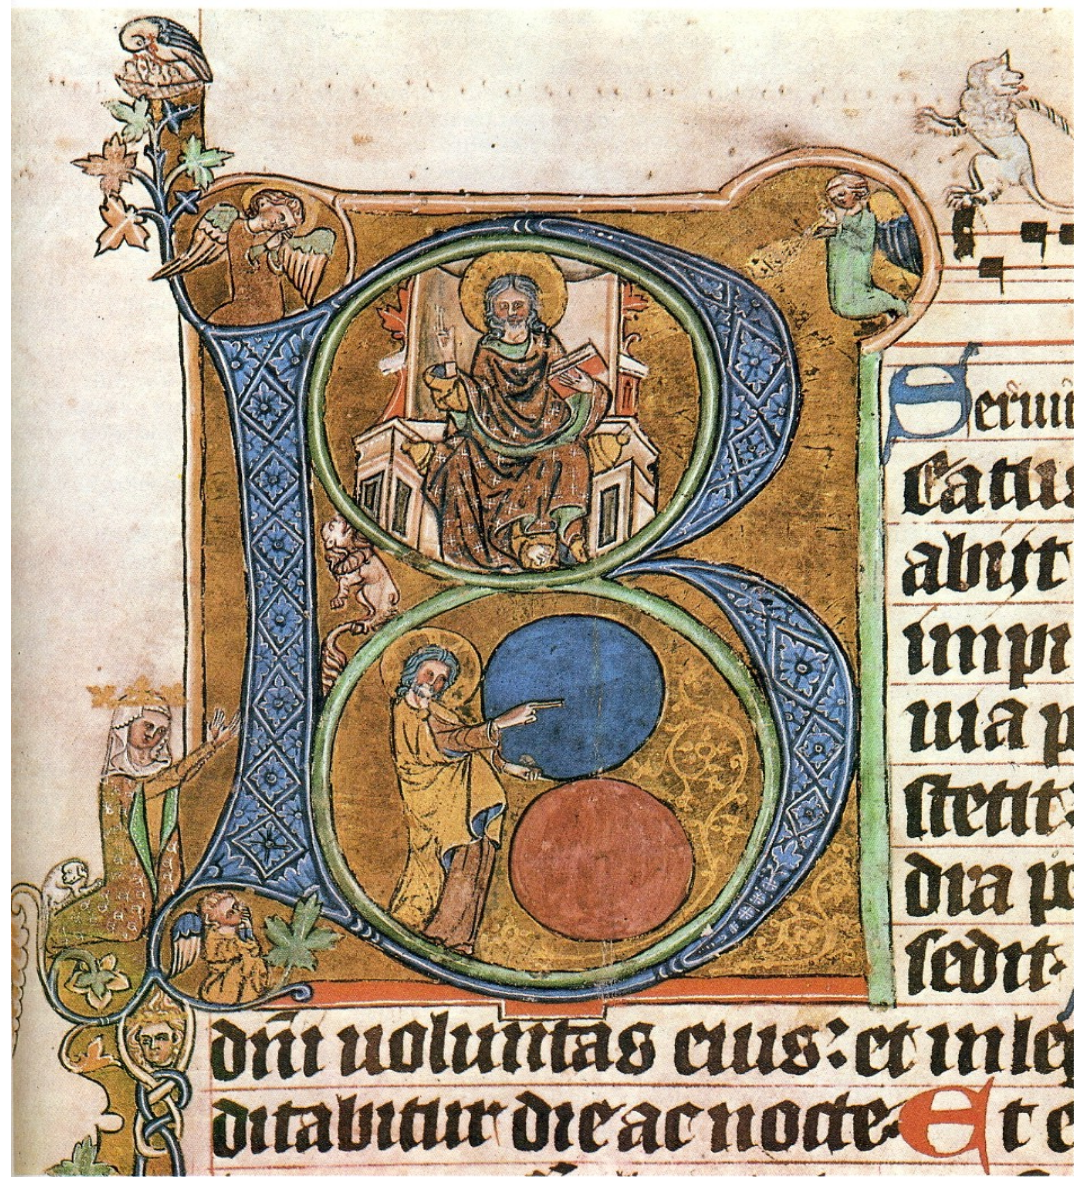 B
Serui
Eatus
abijt
impi
uia p
stetit:
dra p
sedit.
dñi uoluntas eius: et in le
ditabitur die ac nocte. Et e